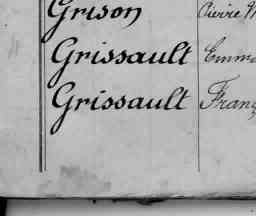 Grison Pierre
Grissault Emma
Grissault Fran